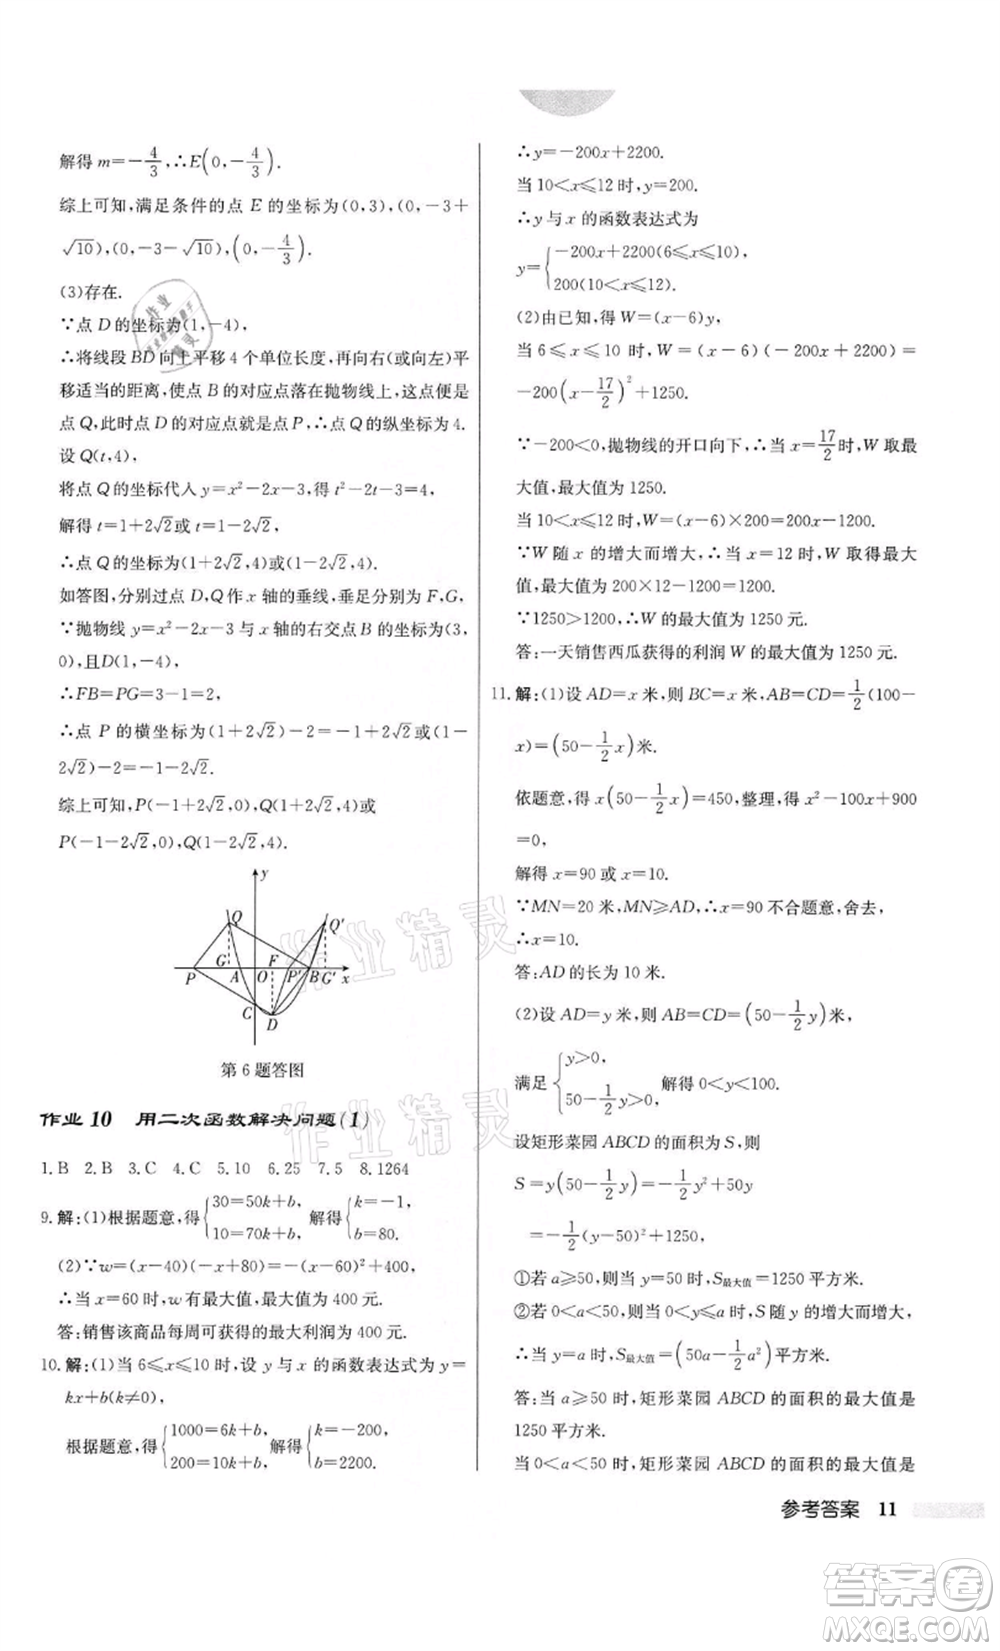 解得 m=-4/3,∴E(0,-4/3).
综上可知,满足条件的点 E 的坐标为(0,3),(0,-3+
√10),(0,-3-√10),(0,-4/3).
(3)存在.
∵点 D 的坐标为(1,-4),
∴将线段 BD 向上平移 4 个单位长度,再向右(或向左)平
移适当的距离,使点 B 的对应点落在抛物线上,这点便是
点 Q,此时点 D 的对应点就是点 P,∴点 Q 的纵坐标为 4.
设 Q(t,4),
将点 Q 的坐标代入 y=x²-2x-3,得 t²-2t-3=4,
解得 t=1+2√2或 t=1-2√2,
∴点 Q 的坐标为(1+2√2,4)或(1-2√2,4).
如答图,分别过点 D,Q 作 x 轴的垂线,垂足分别为 F,G,
∵抛物线 y=x²-2x-3 与 x 轴的右交点 B 的坐标为(3,
0),且 D(1,-4),
∴FB=PG=3-1=2,
∴点 P 的横坐标为(1+2√2)-2=-1+2√2或(1-
2√2)-2=-1-2√2,
综上可知,P(-1+2√2,0),Q(1+2√2,4)或
P(-1-2√2,0),Q(1-2√2,4).
y
Q Q'
G F
P A O P' B G' x
C
D
第 6 题答图
作业 10 用二次函数解决问题(1)
1.B 2.B 3.C 4.C 5.10 6.25 7.5 8.1264
9.解:(1)根据题意,得{30=50k+b, 10=70k+b, 解得{k=-1, b=80.
(2)∵w=(x-40)(-x+80)=-(x-60)²+400,
∴当 x=60 时,w 有最大值,最大值为 400 元.
答:销售该商品每周可获得的最大利润为 400 元.
10.解:(1)当 6≤x≤10 时,设 y 与 x 的函数表达式为 y=
kx+b(k≠0),
根据题意,得{1000=6k+b, 200=10k+b, 解得{k=-200, b=2200.
∴y=-200x+2200.
当 10<x≤12 时,y=200.
∴y 与 x 的函数表达式为
y={-200x+2200(6≤x≤10), 200(10<x≤12).
(2)由已知,得 W=(x-6)y,
当 6≤x≤10 时,W=(x-6)(-200x+2200)=
-200(x-17/2)²+1250.
∵-200<0,抛物线的开口向下,∴当 x=17/2时,W 取最
大值,最大值为 1250.
当 10<x≤12 时,W=(x-6)×200=200x-1200.
∵W 随 x 的增大而增大,∴当 x=12 时,W 取得最大
值,最大值为 200×12-1200=1200.
∵1250>1200,∴W 的最大值为 1250.
答:一天销售西瓜获得的利润 W 的最大值为 1250 元.
11.解:(1)设 AD=x 米,则 BC=x 米,AB=CD=1/2(100-
x)=(50-1/2x)米.
依题意,得 x(50-1/2x)=450,整理,得 x²-100x+900
=0,
解得 x=90 或 x=10.
∵MN=20 米,MN≥AD,∴x=90 不合题意,舍去,
∴x=10.
答:AD 的长为 10 米.
(2)设 AD=y 米,则 AB=CD=(50-1/2y)米,
满足{y>0, 50-1/2y>0, 解得 0<y<100.
设矩形菜园 ABCD 的面积为 S,则
S=y(50-1/2y)=-1/2y²+50y
=-1/2(y-50)²+1250.
①若 a≥50,则当 y=50 时,S最大值=1250 平方米.
②若 0<a<50,则当 0<y≤a 时,S 随 y 的增大而增大,
∴当 y=a 时,S最大值=(50a-1/2a²)平方米.
答:当 a≥50 时,矩形菜园 ABCD 的面积的最大值是
1250 平方米.
当 0<a<50 时,矩形菜园 ABCD 的面积的最大值是
参考答案 11
作业精灵
作业精灵
答案圈
MXQE.COM